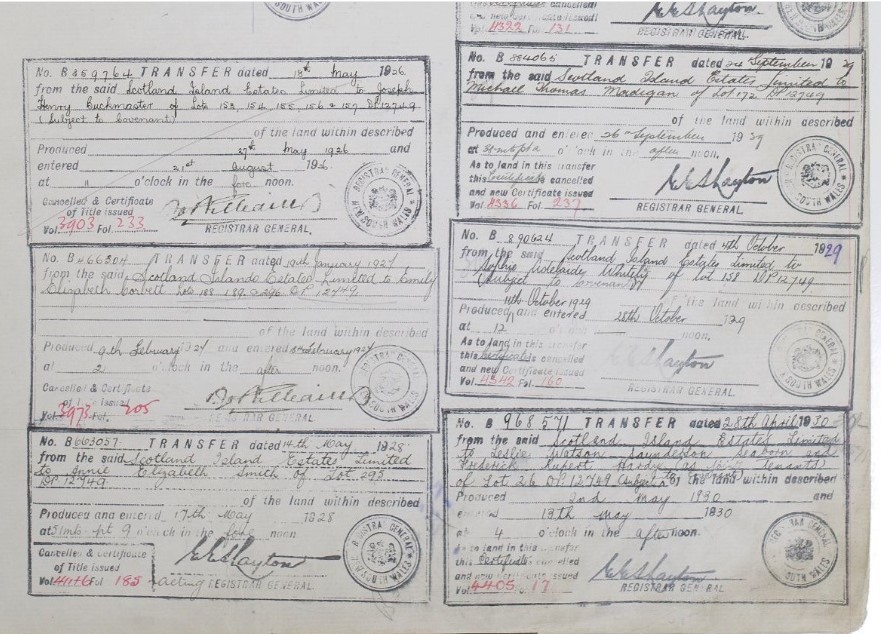 No. B 359764 TRANSFER dated 18th May 1926
from the said Scotland Island Estates Limited to Joseph
Henry Buckmaster of Lots 153, 154, 155, 156 & 157 DP 12749
(Subject to Covenant)
of the land within described
Produced 27th May 1926 and
entered 21st August 1926
at 11 o'clock in the fore noon.
Cancelled & Certificate
of Title issued
Vol. 3903 Fol. 233
REGISTRAR GENERAL.
No. B 466304 TRANSFER dated 19th January 1927
from the said Scotland Islands Estates Limited to Emily
Elizabeth Corbett Lots 188 189 & 296 DP 12749
of the land within described
Produced 9th February 1927 and entered February 1927
at 2 o'clock in the after noon.
Cancelled & Certificate
of Title issued
Vol. 3973 Fol. 205
REGISTRAR GENERAL
No. B 663057 TRANSFER dated 14th May 1928
from the said Scotland Island Estates Limited
to Annie Elizabeth Smith of Lot 293
DP 12749
of the land within described
Produced and entered 17th May 1928
at 5 mts pt 9 o'clock in the fore noon
Cancelled & certificate
of Title issued
Vol. 4146 Fol 185 acting REGISTRAR GENERAL
and new Certificate issued
Vol. 4322 131
REGISTRAR GENERAL
No. B 884065 TRANSFER dated 2nd September 1929
from the said Scotland Island Estates Limited to
Michael Thomas Madigan of Lot 172 DP 12749
of the land within described
Produced and entered 26th September 1929
at o'clock in the after noon.
As to land in this transfer
this Certificate cancelled
and new Certificate issued
Vol. 4336 237
REGISTRAR GENERAL.
No. B 890624 TRANSFER dated 4th October 1929
from the said Scotland Island Estates Limited to
Adelaide of Lot 158 DP 12749
(Subject to Covenant)
the land within described
11th October 1929
Produced and entered 28th October 1929
at 12 noon.
As to land in this transfer
this Certificate is cancelled
and new Certificate issued
Vol. 4342 160
REGISTRAR GENERAL.
No. B 968571 TRANSFER dated 28th April 1930
from the said Scotland Island Estates Limited
to Leslie Watson Saunderson Seaborn and
Frederick Rupert Hardy (as Joint tenants)
of Lot 26 DP 12749 of the land within described
Produced 2nd May 1930 and
entered 13th May 1930
at 4 o'clock in the after noon.
As to land in this transfer
this Certificate cancelled
and new Certificate issued
Vol. 4405 17
REGISTRAR GENERAL